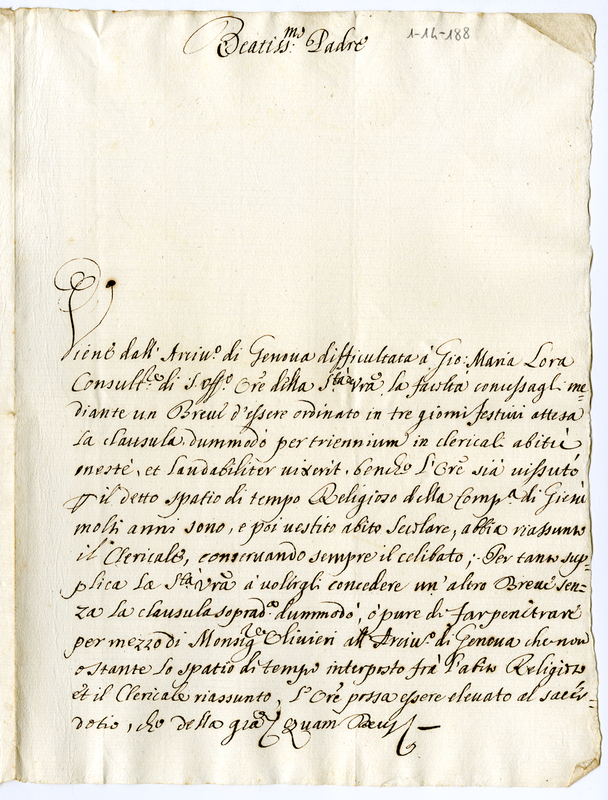 Beatiss:mo Padre
1-14-188
Viene dall' Arciu.o di Genoua difficultata à Gio: Maria Lora
Consult.re di S. Off.o Ore della S.tà Vra la facoltà concessagli me-
diante un Breue d'essere ordinato in tre giorni festiui attesa
la clausula, dummodo per triennium in clericali abitu
oneste, et laudabiliter uixerit, benche l'Ore sia uissuto
p il detto spatio di tempo Religioso della Comp.a di Giesù
molti anni sono, e poi uestito abito Secolare, abbia riassunto
il Clericale, conseruando sempre il celibato; Per tanto sup-
plica La S.tà Vra à volergli concedere un' altro Breue sen-
za la clausula soprad.a dummodo, ò pure di far penetrare
per mezzo di Monsig.re Oliuieri all' Arciu.o di Genoua che non
ostante lo spatio di tempo interposto frà l'abito Religioso
et il Clericale riassunto, l'Ore possa essere eleuato al sacer-
dotio, che della gra Quam Deus